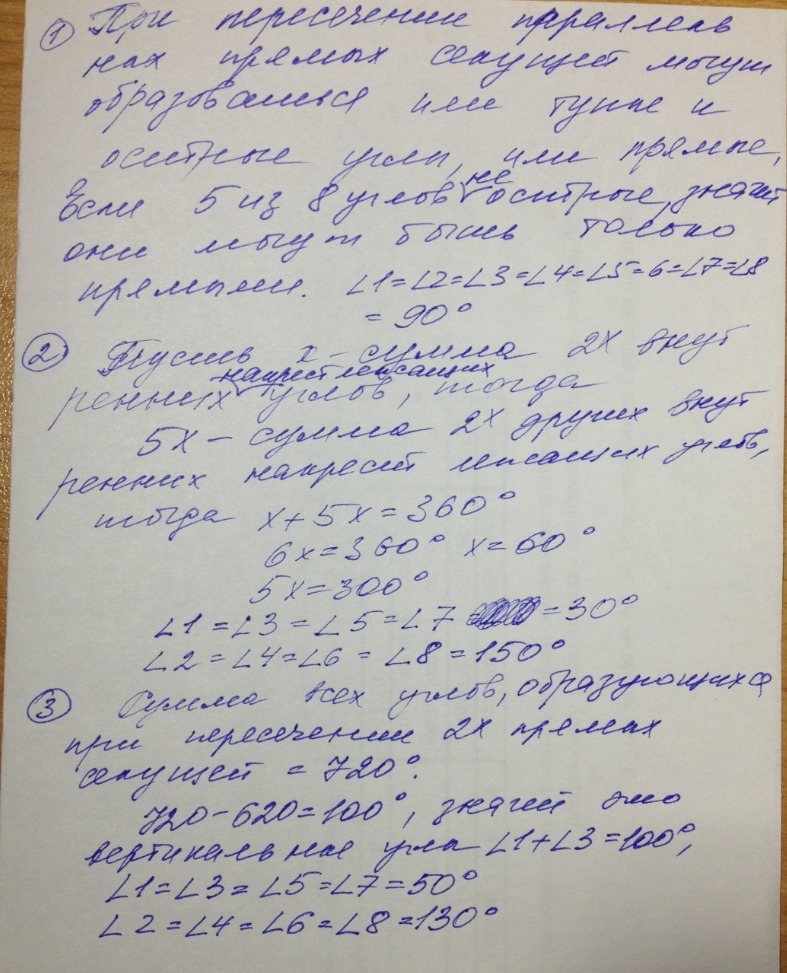 ① При пересечении параллель
ных прямых секущей могут
образоваться или тупые и
острые углы, или прямые.
Если 5 из 8 углов не острые, значит
они могут быть только
прямыми. ∠1=∠2=∠3=∠4=∠5=6=∠7=∠8
= 90°
② Пусть x – сумма 2х внут
ренних накрест лежащих углов, тогда
5x – сумма 2х других внут
ренних накрест лежащих углов,
тогда x+5x=360°
6x=360° x=60°
5x=300°
∠1=∠3=∠5=∠7 =30°
∠2=∠4=∠6=∠8=150°
③ Сумма всех углов, образующихся
при пересечении 2х прямых
секущей = 720°.
720-620=100°, значит это
вертикальные углы ∠1+∠3=100°,
∠1=∠3=∠5=∠7=50°
∠2=∠4=∠6=∠8=130°